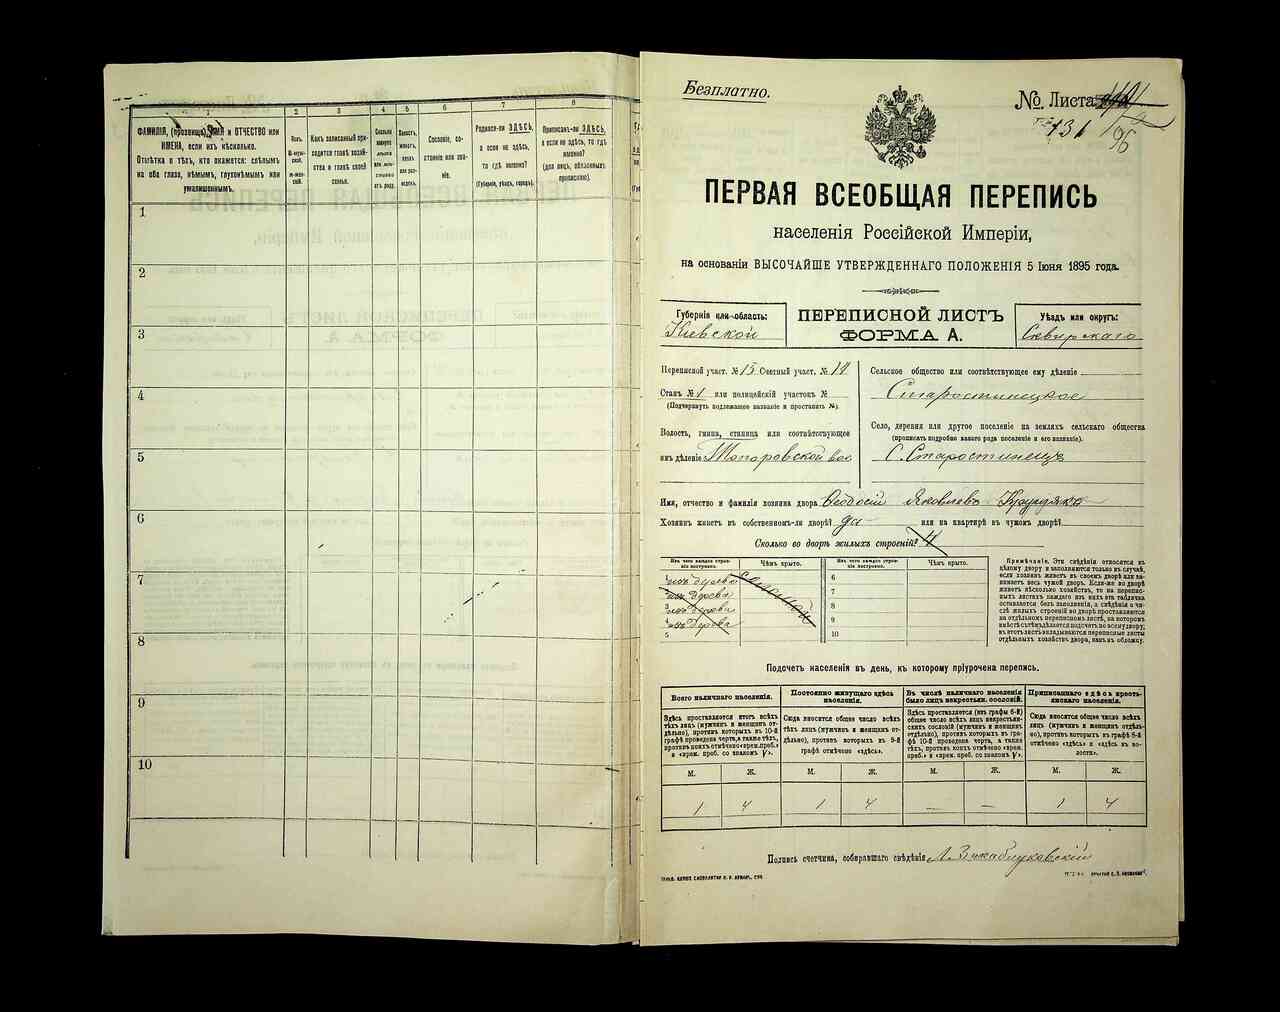 1 2 3 4 5 6 7 8
ФАМИЛІЯ, (прозвище), ИМЯ и ОТЧЕСТВО или
ИМЕНА, если ихъ нѣсколько.
Отмѣтка о тѣхъ, кто окажется: слѣпымъ
на оба глаза, нѣмымъ, глухонѣмымъ или
умалишеннымъ.
Полъ.
М-муж-
ской.
Ж-жен-
скій.
Какъ записанный при-
ходится главѣ хозяй-
ства и главѣ своей
семьи.
Сколько
минуло
лѣтъ
или мѣс-
отъ роду.
Сословіе, со-
стояніе или зва-
ніе.
Родился-ли ЗДѢСЬ,
а если не здѣсь,
то гдѣ именно?
(Губернія, уѣздъ, городъ).
Приписанъ-ли ЗДѢСЬ,
а если не здѣсь, то гдѣ
именно?
(для лицъ, обязанныхъ
припискою).
1
2
3
4
5
6
7
8
9
10
Безплатно.
№ Листа
131
96
ПЕРВАЯ ВСЕОБЩАЯ ПЕРЕПИСЬ
населенія Россійской Имперіи,
на основаніи ВЫСОЧАЙШЕ УТВЕРЖДЕННАГО ПОЛОЖЕНІЯ 5 Іюня 1895 года.
Губернія или область:
Кіевской
ПЕРЕПИСНОЙ ЛИСТЪ
ФОРМА А.
Уѣздъ или округъ:
Сквирскаго
Переписной участ. № 15 Счетный участ. № 14
Станъ № 1 или полицейскій участокъ №
(Подчеркнуть подлежащее названіе и проставить №).
Волость, гмина, станица или соотвѣтствующее
имъ дѣленіе Топоровской вол
Сельское общество или соотвѣтствующее ему дѣленіе
Старостинецкое
Село, деревня или другое поселеніе на земляхъ сельскаго общества
(прописать подробно какого рода поселеніе и его названіе).
С. Старостинецъ
Имя, отчество и фамилія хозяина двора Ѳеодосій Яковлевъ
Хозяинъ живетъ въ собственномъ-ли дворѣ? да или на квартирѣ въ чужомъ дворѣ?
Сколько во дворѣ жилыхъ строеній? 4
Изъ чего каждое строе-
ніе построено.
Чѣмъ крыто.
Изъ чего каждое строе-
ніе построено.
Чѣмъ крыто.
1 изъ дерева соломой
2 изъ дерева
3 изъ дерева
4 изъ дерева
5
6
7
8
9
10
Примѣчаніе. Эти свѣдѣнія относятся къ
цѣлому двору и заполняются только въ случаѣ,
если хозяинъ живетъ въ своемъ дворѣ или за-
нимаетъ весь чужой дворъ. Если-же во дворѣ
живетъ нѣсколько хозяйствъ, то на перепис-
ныхъ листахъ каждаго изъ нихъ эта табличка
оставляется безъ заполненія, а свѣдѣнія о чи-
слѣ жилыхъ строеній во дворѣ проставляются
на отдѣльномъ переписномъ листѣ, на которомъ
вмѣстѣ съ тѣмъ дѣлается подсчетъ по всему двору;
въ этотъ листъ вкладываются переписные листы
отдѣльныхъ хозяйствъ двора, какъ въ обложку.
Подсчетъ населенія въ день, къ которому пріурочена перепись.
Всего наличнаго населенія.
Постоянно живущаго здѣсь
населенія.
Въ числѣ наличнаго населенія
было лицъ некрестьян. сословій.
Приписаннаго здѣсь кресть-
янскаго населенія.
Здѣсь проставляется итогъ всѣхъ
лицъ (мужчинъ и женщинъ от-
дѣльно), противъ которыхъ въ 10-й
графѣ проведена черта, а также тѣхъ,
противъ коихъ отмѣчено «врем. преб.»
и «врем. преб. со знакомъ V».
Сюда вносится общее число всѣхъ
лицъ (мужчинъ и женщинъ от-
дѣльно), противъ которыхъ въ 9-й
графѣ отмѣчено «здѣсь».
Здѣсь проставляется (изъ графы 6-й)
общее число всѣхъ лицъ некрестьян-
скихъ сословій (мужчинъ и женщинъ
отдѣльно), противъ которыхъ въ гра-
фѣ 10 проведена черта, а также
тѣхъ, противъ коихъ отмѣчено «врем.
преб.» и «врем. преб. со знакомъ V».
Сюда вносится общее число всѣхъ
лицъ (мужчинъ и женщинъ отдѣль-
но), противъ которыхъ въ графѣ 8-й
отмѣчено «здѣсь» и «здѣсь въ во-
лости».
М. Ж. М. Ж. М. Ж. М. Ж.
1 4 1 4 — — 1 4
Подпись счетчика, собиравшаго свѣдѣнія